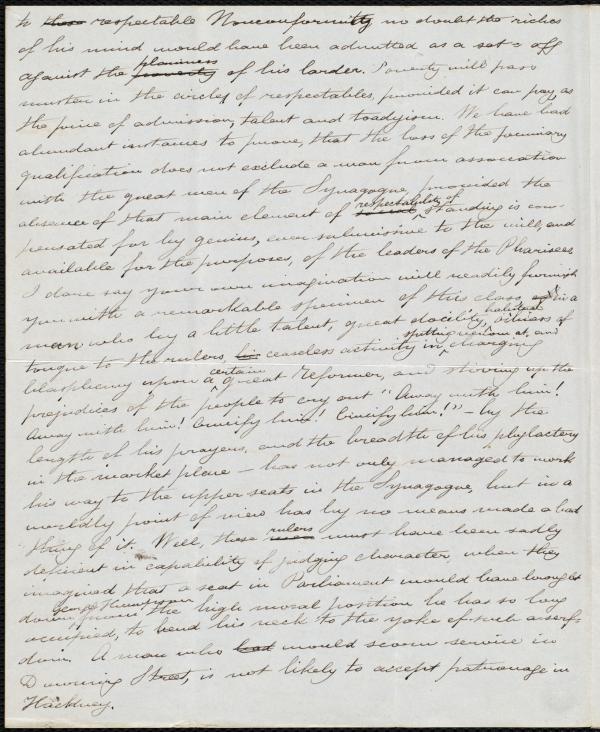 to those respectable Nonconformity no doubt the riches
of his mind would have been admitted as a set-off
plainness
against the poverty of his larder. Poverty will pass
muster in the circles of respectables, provided it can pay, as
the price of admission, talent and toadyism. We have had
abundant instances to prove, that the loss of the pecuniary
qualification does not exclude a man from association
with the great men of the Synagogue, provided the
respectability of
absence of that main element of standing is com-
pensated for by genius, ever submissive to the will, and
available for the purposes, of the leaders of the Pharisees.
I dare say your own imagination will readily furnish
you with a remarkable specimen of this class in a
habitual
man who by a little talent, great docility, oiliness of
spitting venom at, and
tongue to the rulers, his ceaseless activity in charging
certain
blasphemy upon a great Reformer, and stirring up the
prejudices of the people to cry out "Away with him!
Away with him! Crucify him! Crucify him!" – by the
length of his prayers, and the breadth of his phylactery
in the market place – has not only managed to work
his way to the upper seats in the Synagogue, but in a
worldly point of view has by no means made a bad
rulers
thing of it. Well, these men must have been sadly
deficient in capability of judging character when they
imagined that a seat in Parliament would have brought
George Thompson
down from the high moral position he has so long
occupied, to bend his neck to the yoke of such a serf-
dom. A man who had would scorn service in
Downing Street, is not likely to accept patronage in
Hackney.